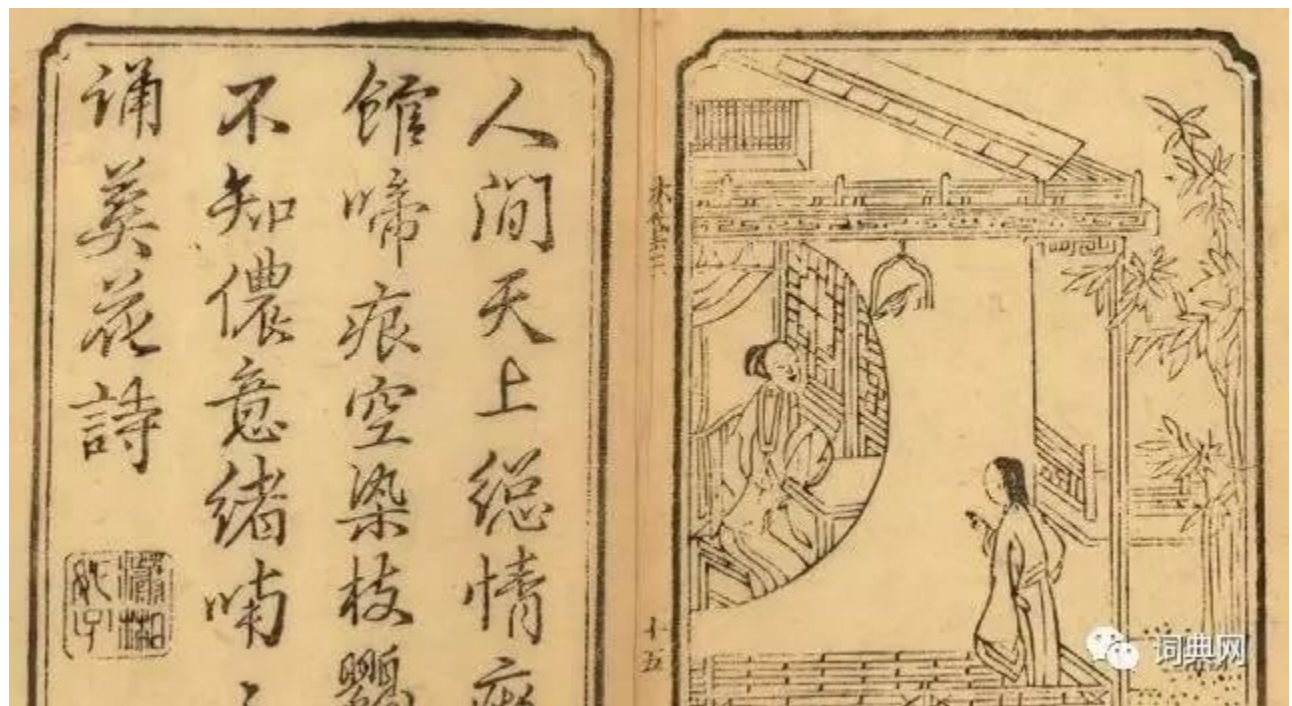 人間天上總情
館啼痕空染枝鸚
不知儂意緒喃
誦葬花詩
瀟湘
妃子
十五
词典网